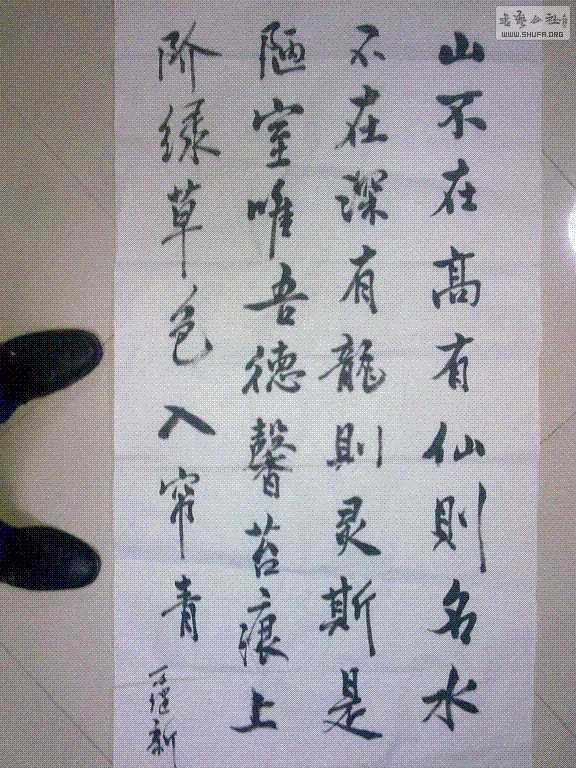 山不在高有仙則名水
不在深有龍則灵斯是
陋室唯吾德馨苔痕上
阶绿草色入帘青
書藝公社
WWW.SHUFA.ORG